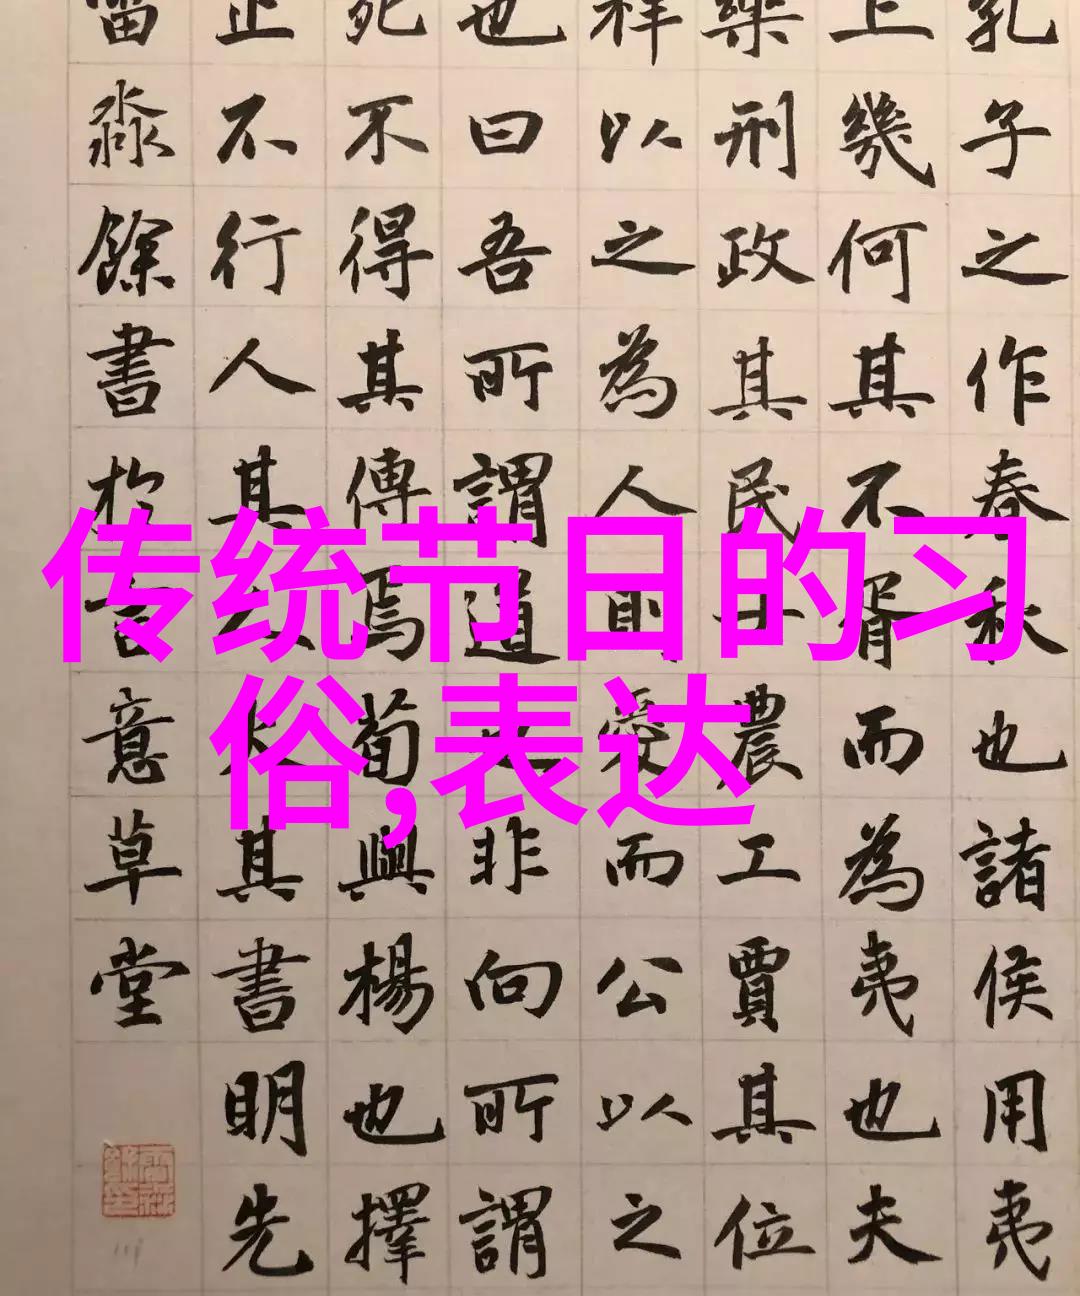 孔子之作春秋也諸侯用夷
上幾何其不胥而為夷也夫
樂刑政其民士農工賈其位
祥以之為人則愛而公以之
也曰吾所謂道也非向所謂
死不得其傳焉荀與楊也擇
止不行人其人火其書明先
淼餘書於意草堂
传统节日的习
俗,表达